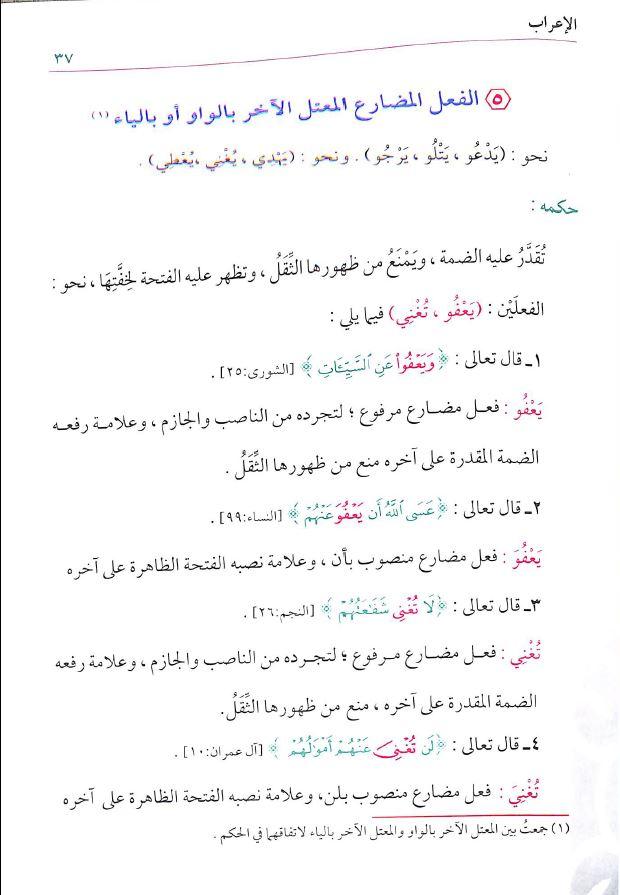 الإعراب
٣٧
٥ الفعل المضارع المعتل الآخر بالواو أو بالياء (١)
نحو : (يَدْعُو ، يَتْلُو ، يَرْجُو) . ونحو : (يَهْدِي ، يُغْنِي ، يُعْطِي) .
حكمه :
تُقَدَّرُ عليه الضمة ، ويَمْنَعُ من ظهورها الثِّقَلُ ، وتظهر عليه الفتحة لِخِفَّتِهَا ، نحو :
الفعلَيْن : (يَعْفُو ، تُغْنِي) فيما يلي :
١ـ قال تعالى : ﴿ وَيَعْفُواْ عَنِ ٱلسَّيِّـَٔاتِ ﴾ [الشورى:٢٥] .
يَعْفُو : فعـل مضـارع مرفوع ؛ لتجرده من الناصب والجازم ، وعلامـة رفعـه
الضمة المقدرة على آخره منع من ظهورها الثِّقَلُ .
٢ـ قال تعالى : ﴿ عَسَى ٱللَّهُ أَن يَعْفُوَ عَنْهُمْ ﴾ [النساء:٩٩] .
يَعْفُوَ : فعل مضارع منصوب بأن ، وعلامة نصبه الفتحة الظاهرة على آخره
٣ـ قال تعالى : ﴿ لَا تُغْنِى شَفَـٰعَتُهُمْ ﴾ [النجم:٢٦] .
تُغْنِي : فعـل مضـارع مـرفوع ؛ لتجـرده من الناصب والجازم ، وعلامة رفعه
الضمة المقدرة على آخره ، منع من ظهورها الثِّقَلُ.
٤ـ قال تعالى : ﴿ لَن تُغْنِىَ عَنْهُمْ أَمْوَٰلُهُمْ ﴾ [آل عمران:١٠] .
تُغْنِيَ : فعل مضارع منصوب بلن، وعلامة نصبه الفتحة الظاهرة على آخره
(١) جمعتُ بين المعتل الآخر بالواو والمعتل الآخر بالياء لاتفاقهما في الحكم .